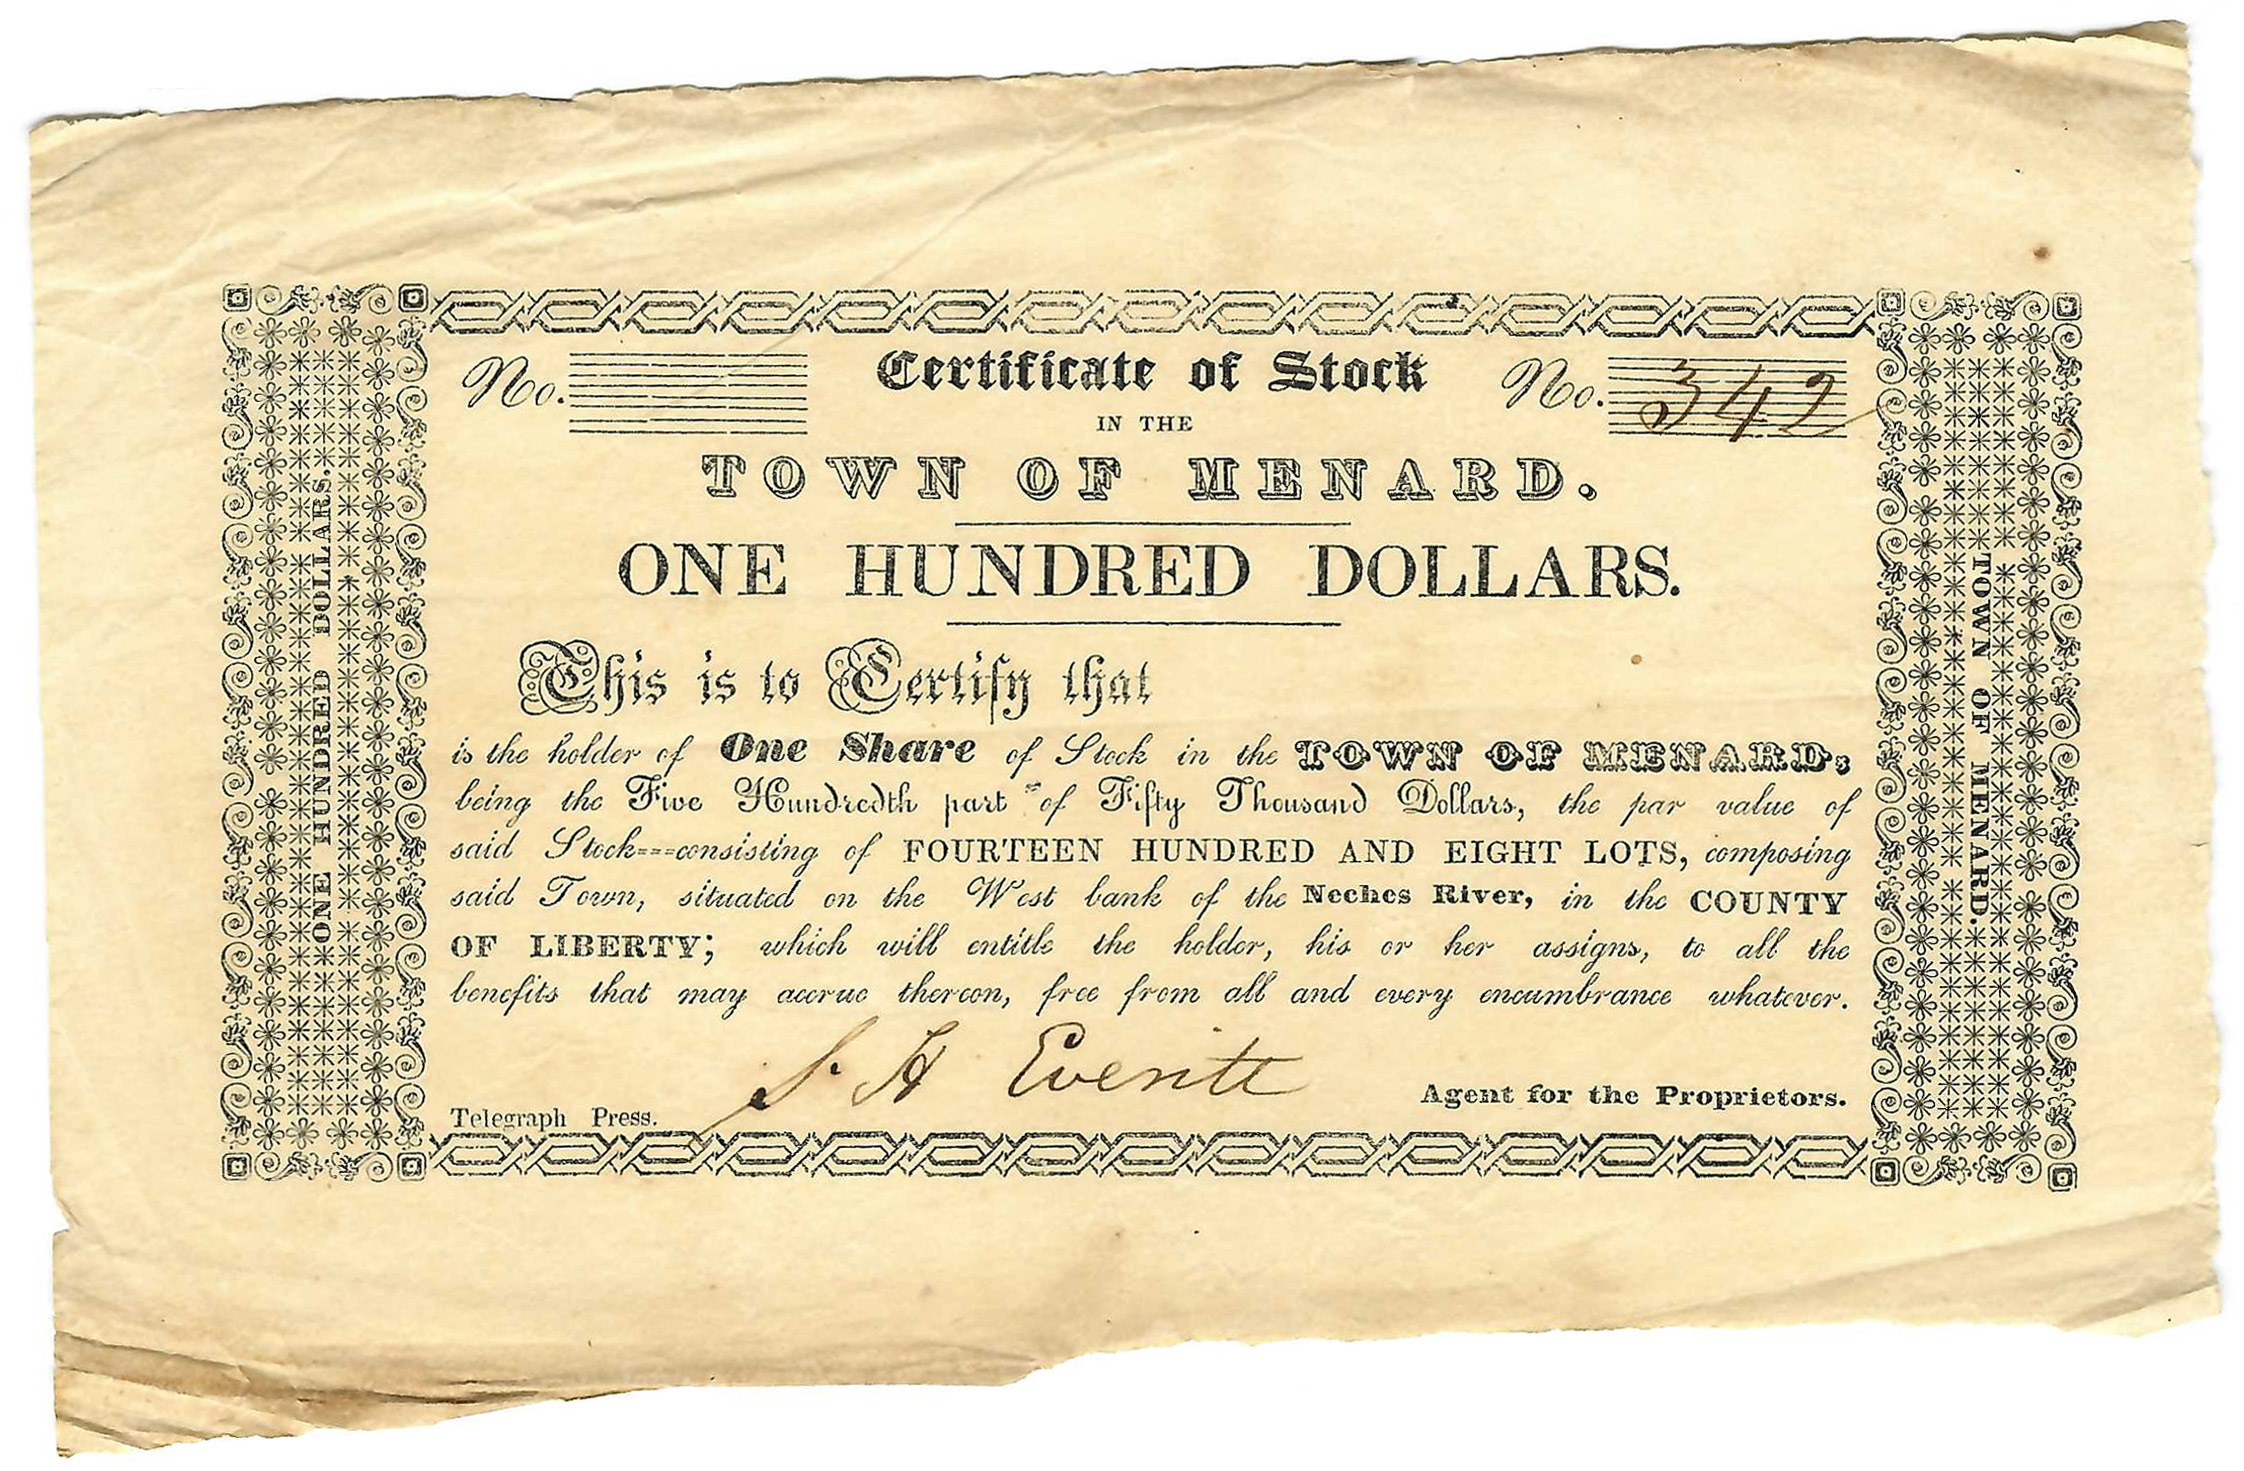 No. Certificate of Stock No. 342
IN THE
TOWN OF MENARD.
ONE HUNDRED DOLLARS.
This is to Certify that
is the holder of One Share of Stock in the TOWN OF MENARD,
being the Five Hundredth part of Fifty Thousand Dollars, the par value of
said Stock===consisting of FOURTEEN HUNDRED AND EIGHT LOTS, composing
said Town, situated on the West bank of the Neches River, in the COUNTY
OF LIBERTY; which will entitle the holder, his or her assigns, to all the
benefits that may accrue thereon, free from all and every encumbrance whatever.
S. H Everitt
Agent for the Proprietors.
Telegraph Press.
ONE HUNDRED DOLLARS.
TOWN OF MENARD.